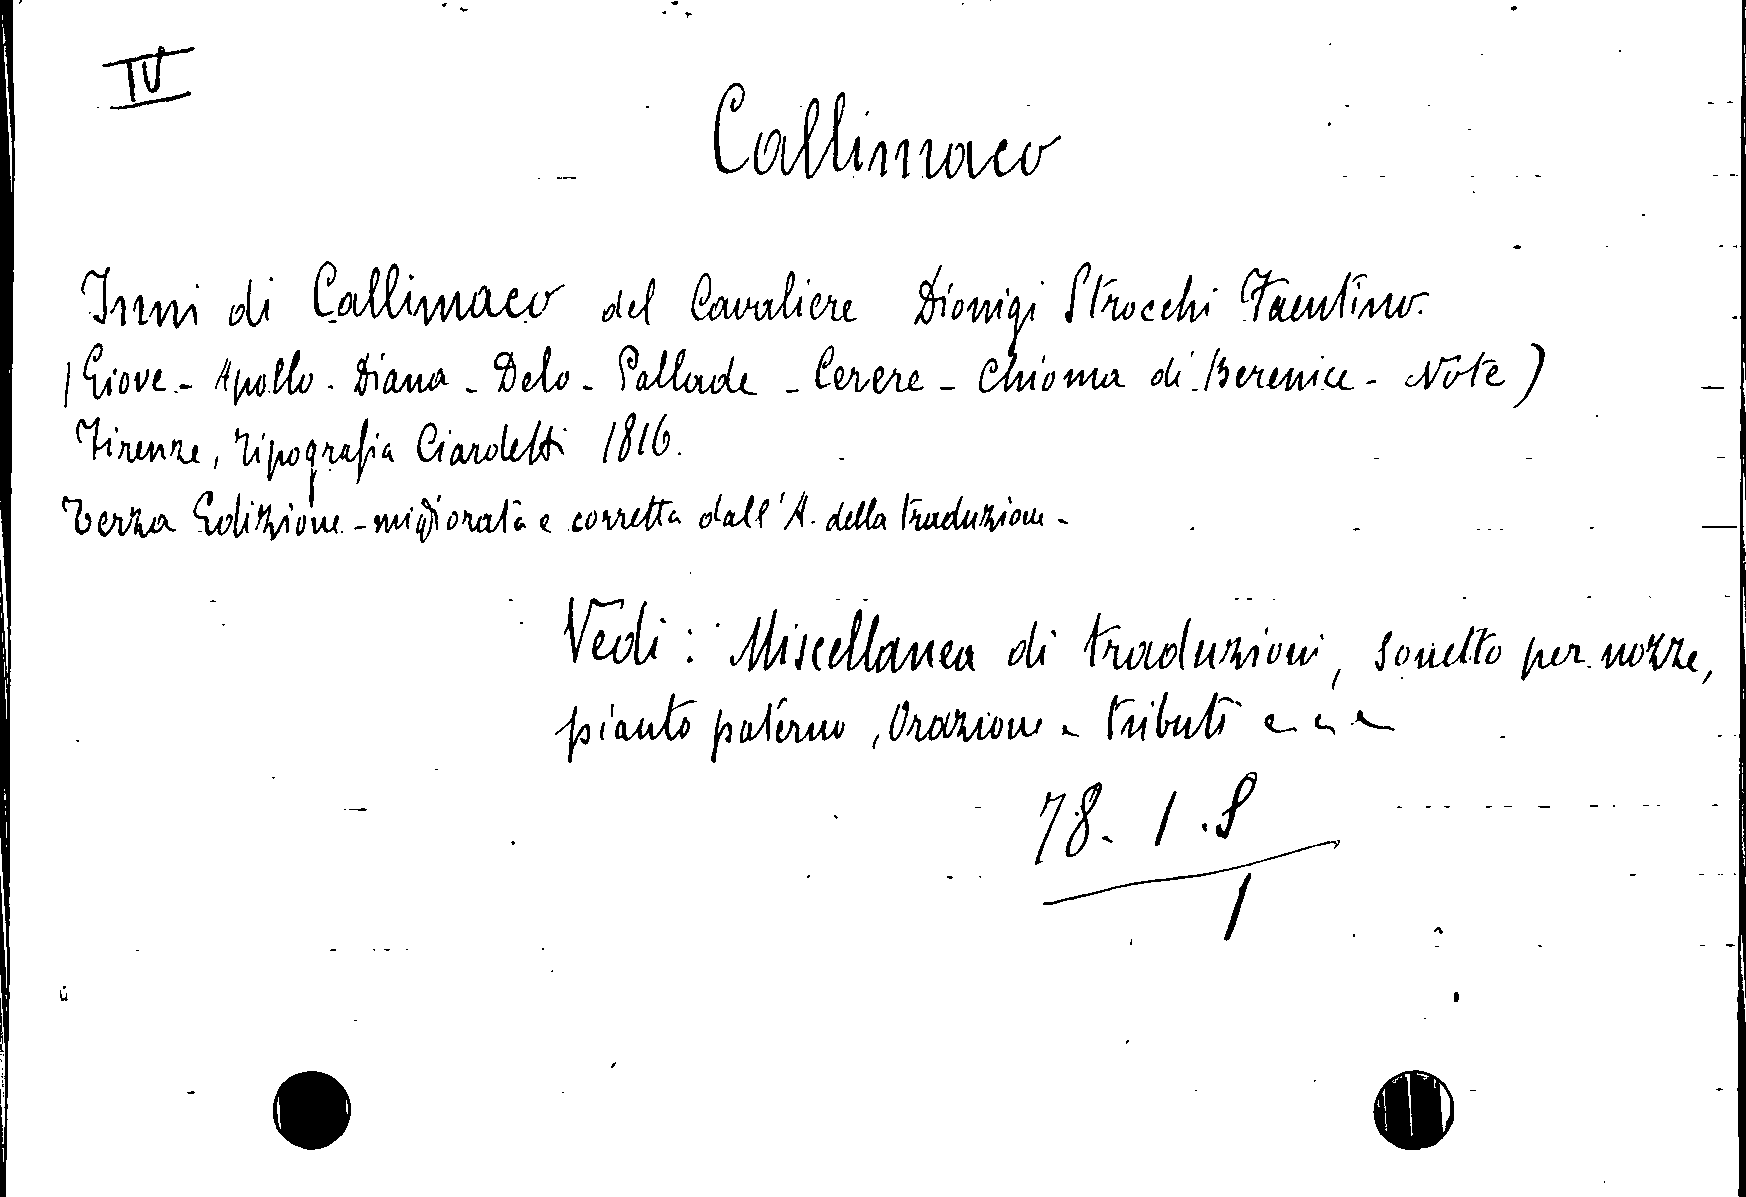 IV
Callimaco
Inni di Callimaco del Cavaliere Dionigi Strocchi Faentino.
(Giove - Apollo - Diana - Delo - Pallade - Cerere - Chioma di Berenice - Note)
Firenze, Tipografia Ciardetti 1816.
Terza Edizione - migliorata e corretta dall'A. della traduzione -
Vedi: Miscellanea di traduzioni, sonetto per nozze,
pianto paterno, Orazione e tributi
78. 1. S
1